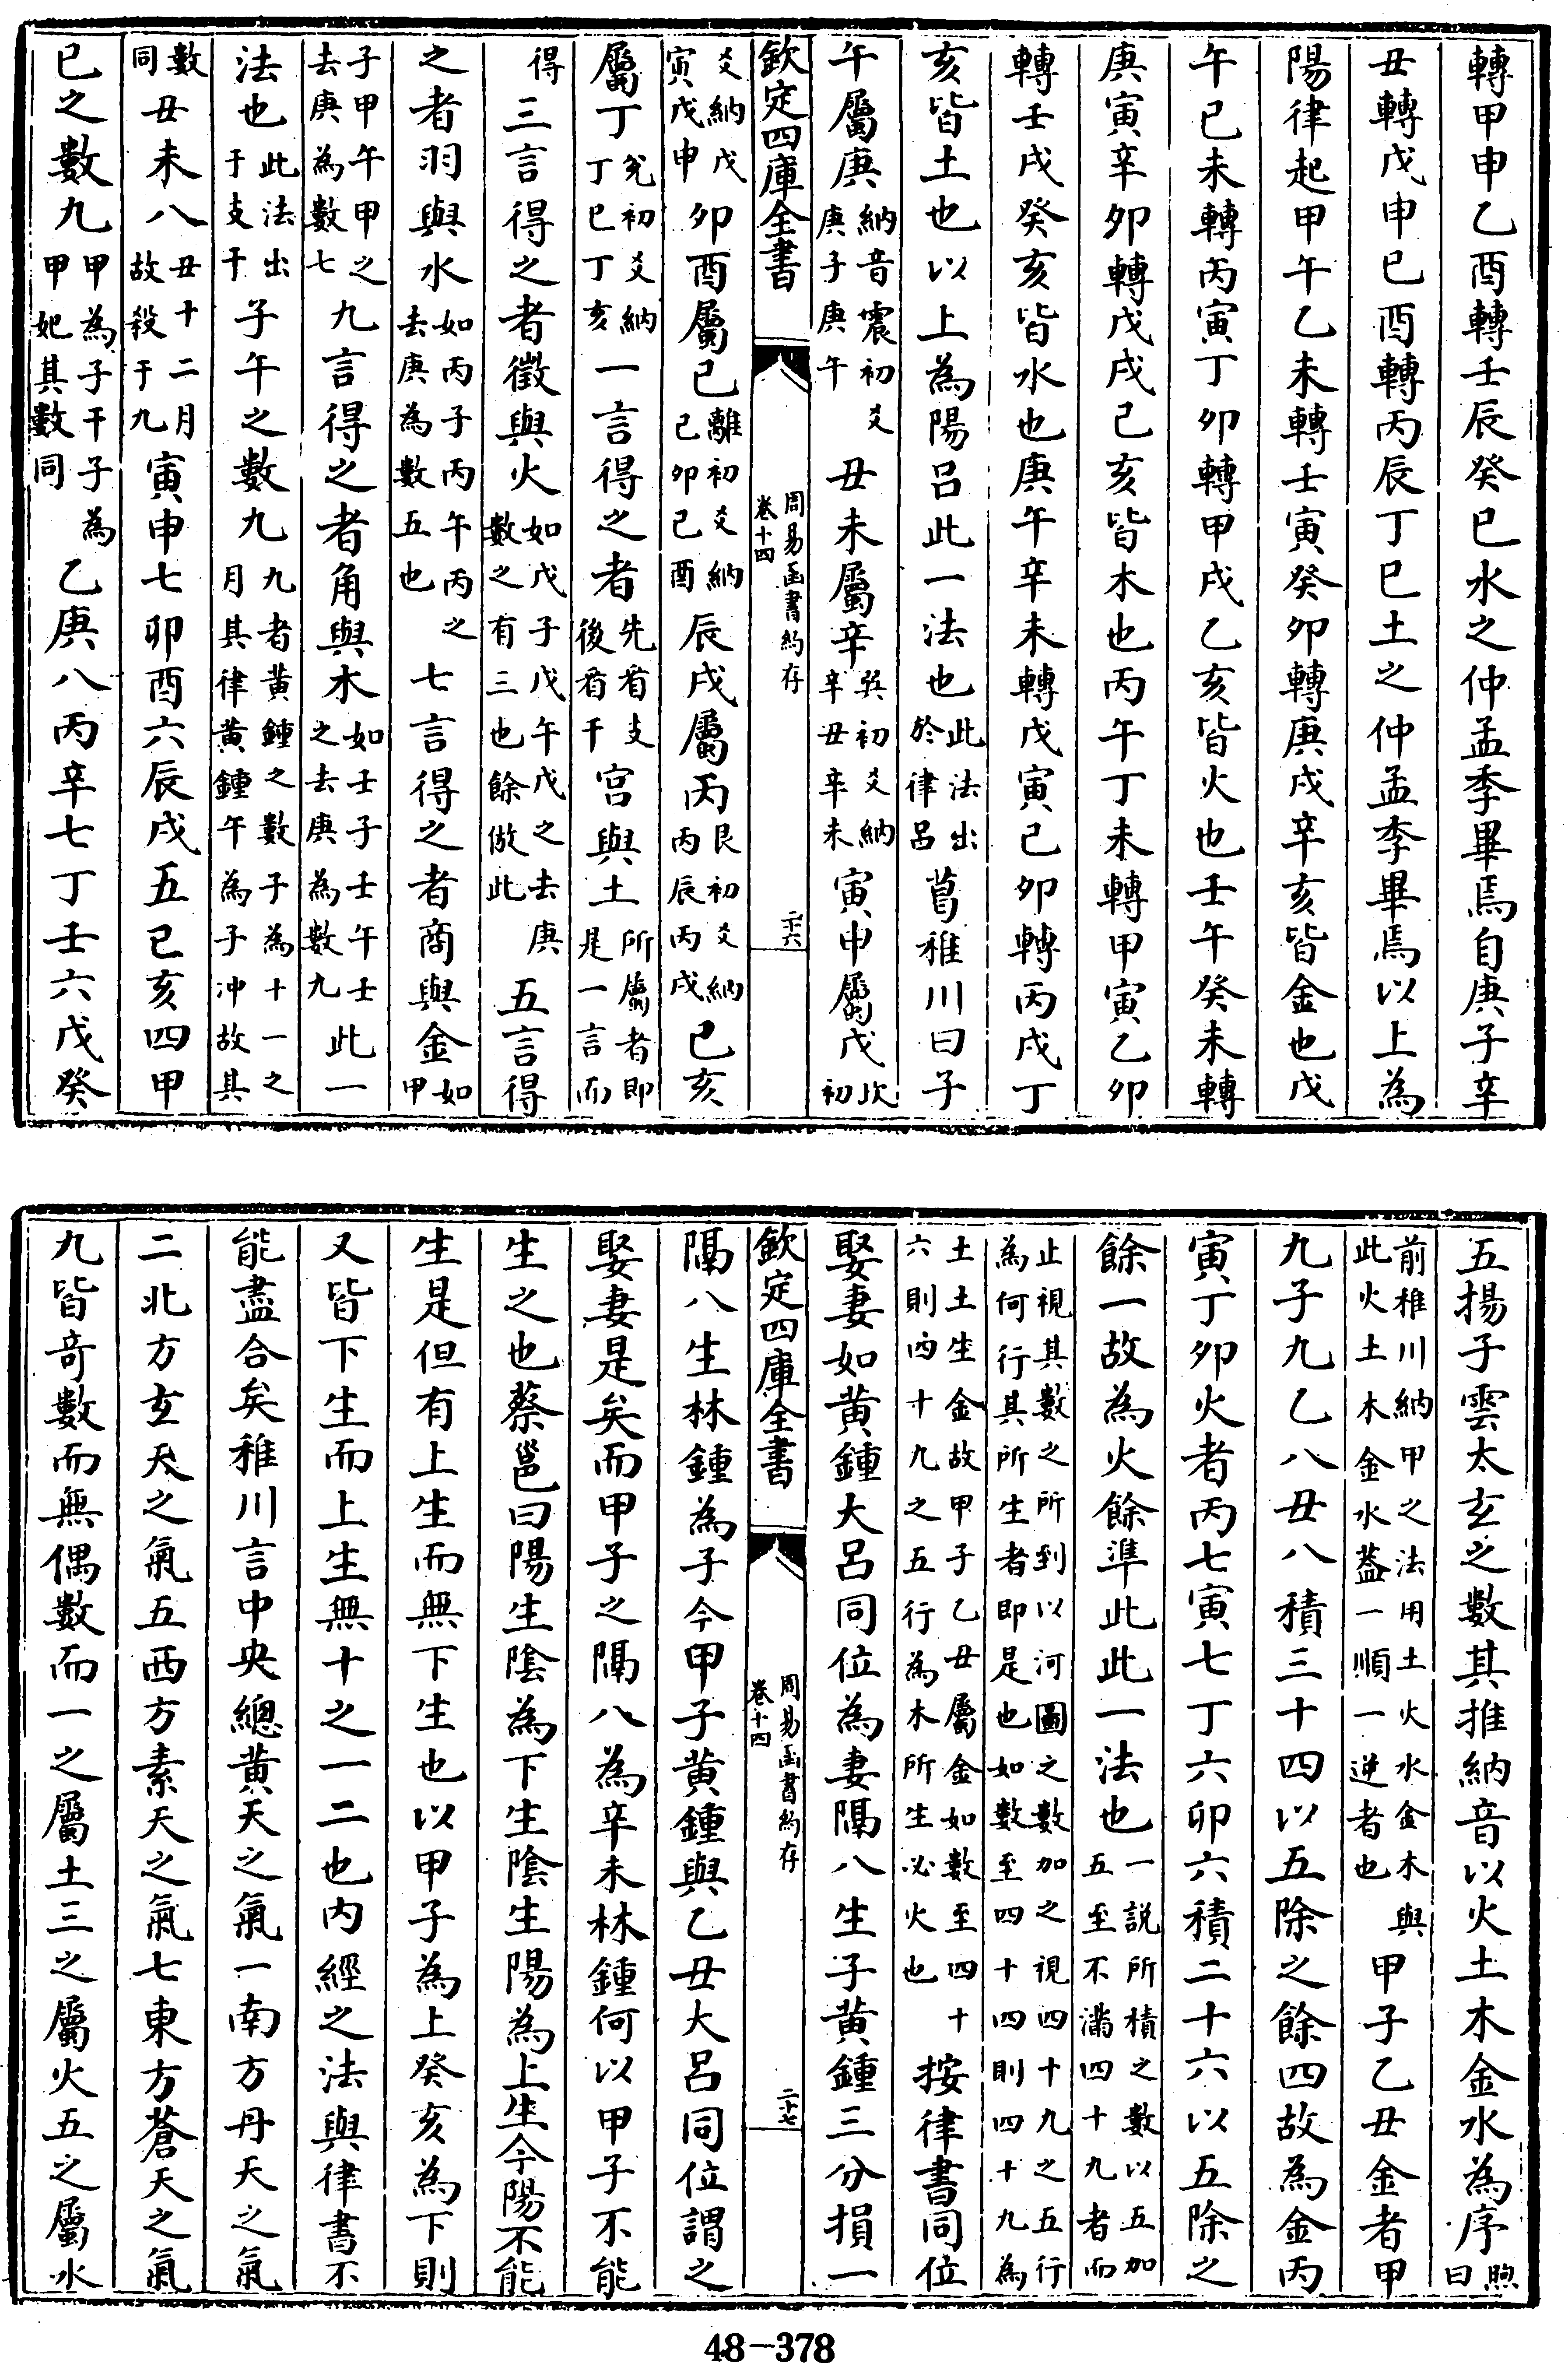 轉甲申乙酉轉壬辰癸巳水之仲孟季畢焉自庚子辛
丑轉戊申己酉轉丙辰丁巳土之仲孟季畢焉以上為
陽律起甲午乙未轉壬寅癸卯轉庚戌辛亥皆金也戊
午己未轉丙寅丁卯轉甲戌乙亥皆火也壬午癸未轉
庚寅辛卯轉戊戌己亥皆木也丙午丁未轉甲寅乙卯
轉壬戌癸亥皆水也庚午辛未轉戊寅己卯轉丙戌丁
亥皆土也以上為陽呂此一法也此法出於律呂葛稚川曰子
午屬庚納音震初爻庚子庚午丑未屬辛巽初爻納辛丑辛未寅申屬戊坎初
欽定四庫全書
周易函書約存
卷十四
二十六
爻納戊寅戊申卯酉屬己離初爻納己卯己酉辰戌屬丙艮初爻納丙辰丙戌巳亥
屬丁兌初爻納丁巳丁亥一言得之者先看支後看干宮與土所屬者即是一言而
得三言得之者徵與火如戊子戊午戊之去庚數之有三也餘倣此五言得
之者羽與水如丙子丙午丙之去庚為數五也七言得之者商與金如甲
子甲午甲之去庚為數七九言得之者角與木如壬子壬午壬之去庚為數九此一
法也此法出于支干子午之數九九者黃鍾之數子為十一之月其律黃鍾午為子沖故其
數同丑未八丑十二月故殺于九寅申七卯酉六辰戌五巳亥四甲
己之數九甲為子干子為甲妃其數同乙庚八丙辛七丁壬六戊癸
五揚子雲太玄之數其推納音以火土木金水為序煦曰
前稚川納甲之法用土火水金木與此火土木金水葢一順一逆者也甲子乙丑金者甲
九子九乙八丑八積三十四以五除之餘四故為金丙
寅丁卯火者丙七寅七丁六卯六積二十六以五除之
餘一故為火餘準此此一法也一說所積之數以五加五至不滿四十九者而
止視其數之所到以河圖之數加之視四十九之五行為何行其所生者即是也如數至四十四則四十九為
土土生金故甲子乙丑屬金如數至四十六則內十九之五行為木所生必火也按律書同位
娶妻如黃鍾大呂同位為妻隔八生子黃鍾三分損一
欽定四庫全書
周易函書約存
卷十四
二十七
隔八生林鍾為子今甲子黃鍾與乙丑大呂同位謂之
娶妻是矣而甲子之隔八為辛未林鍾何以甲子不能
生之也蔡邕曰陽生陰為下生陰生陽為上生今陽不能
生是但有上生而無下生也以甲子為上癸亥為下則
又皆下生而上生無十之一二也內經之法與律書不
能盡合矣稚川言中央總黃天之氣一南方丹天之氣
二北方玄天之氣五西方素天之氣七東方蒼天之氣
九皆奇數而無偶數而一之屬土三之屬火五之屬水
48-378